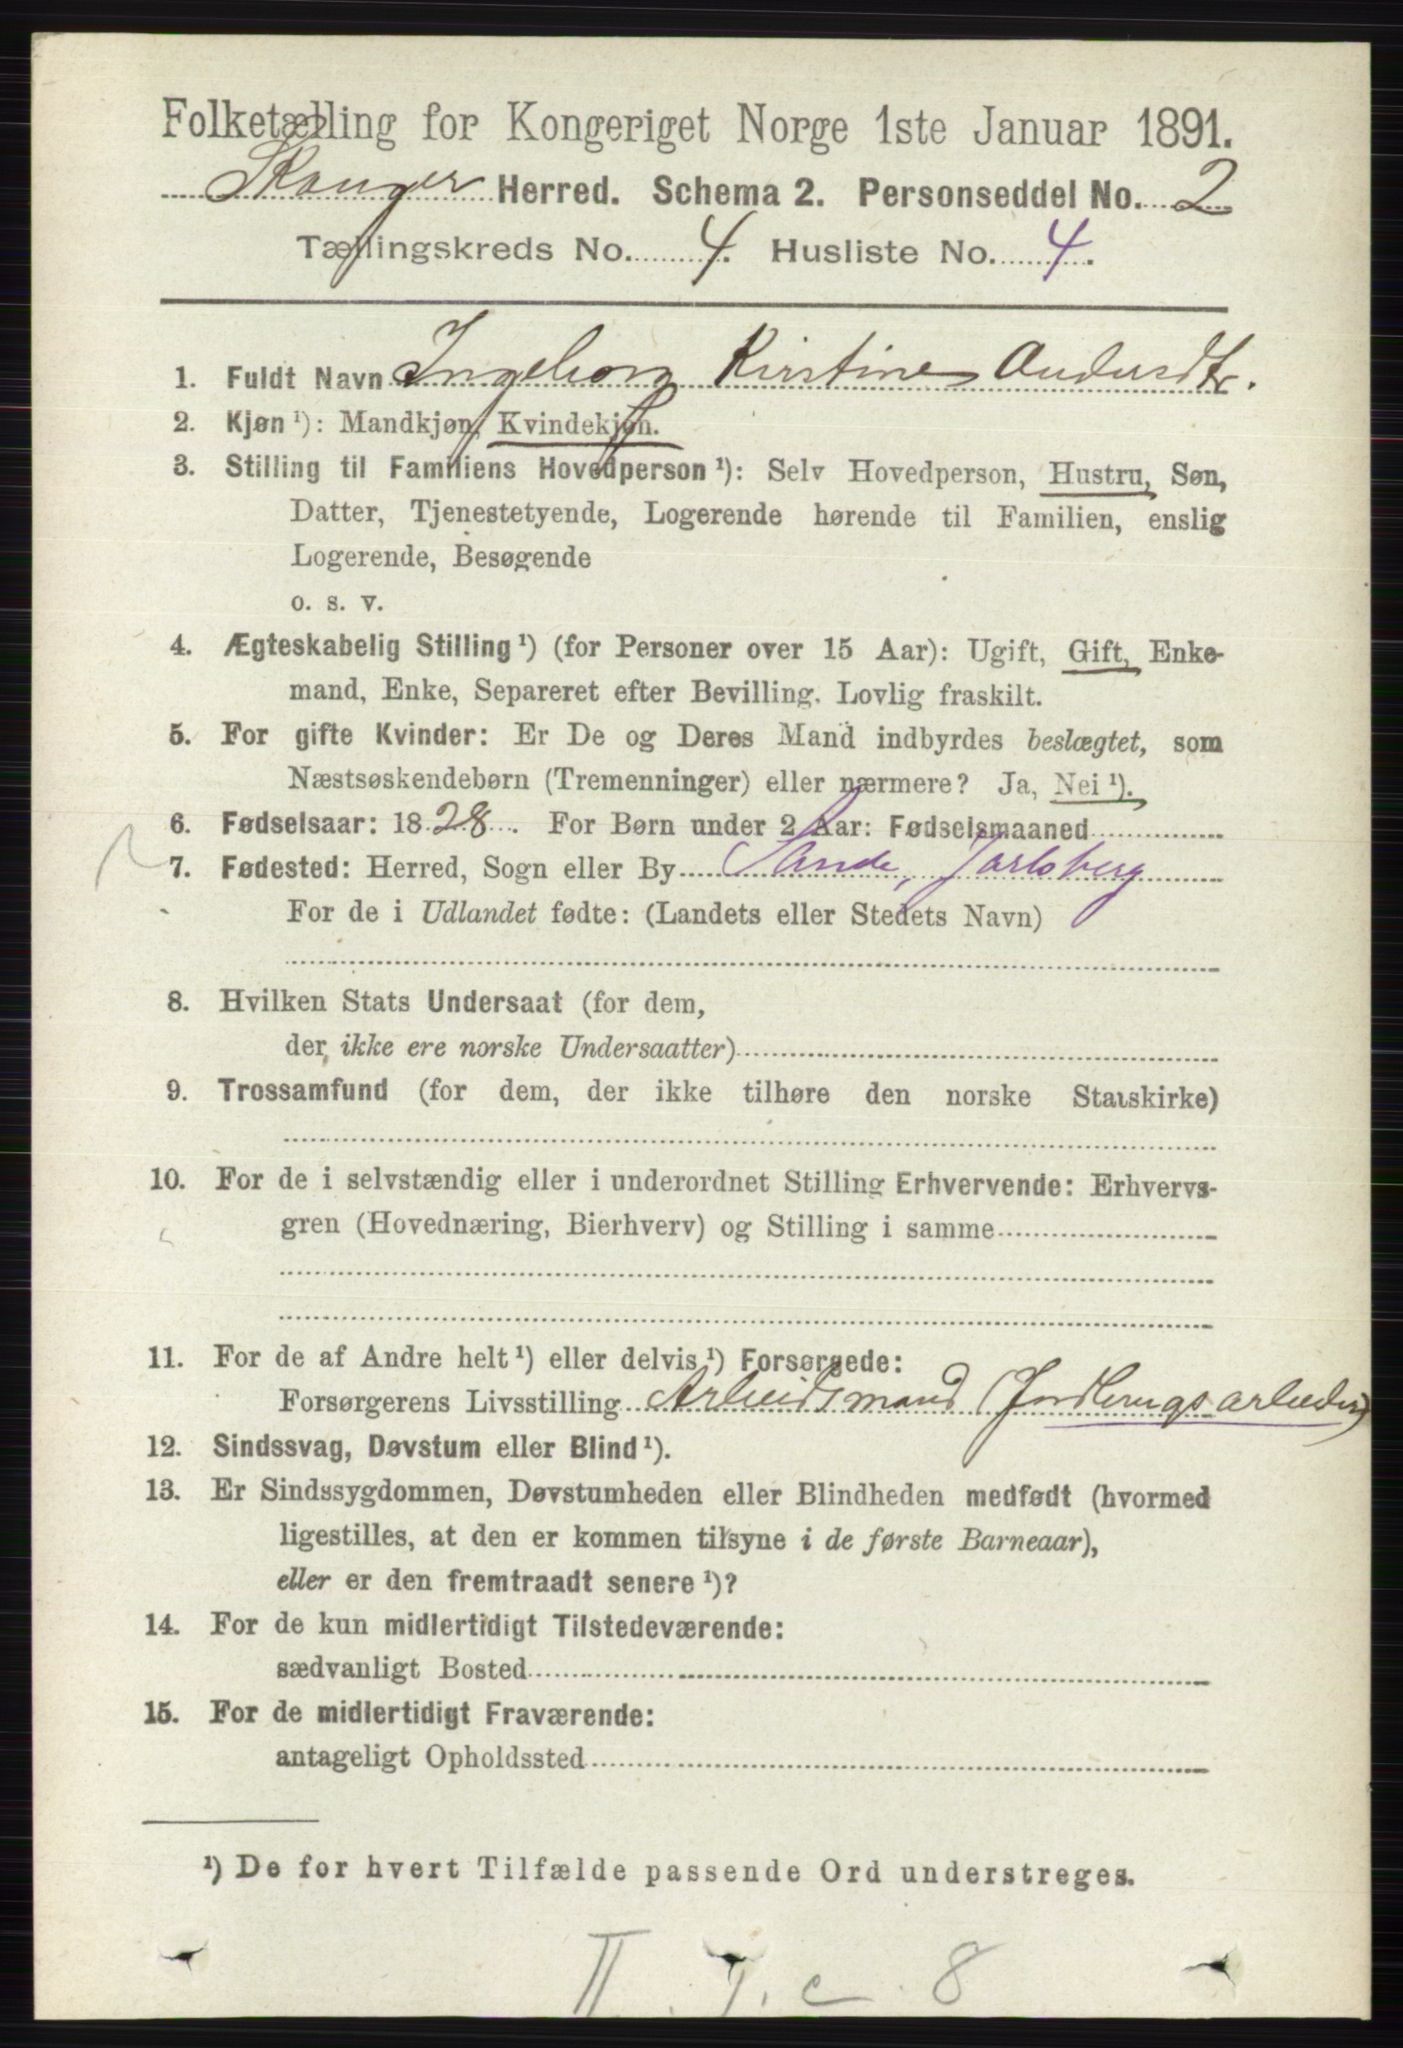 Folketælling for Kongeriget Norge 1ste Januar 1891.
Skouger Herred. Schema 2. Personseddel No. 2
Tællingskreds No. 4. Husliste No. 4.
1. Fuldt Navn Ingeborg Kirstine Andersdtr.
2. Kjøn ¹): Mandkjøn, Kvindekjøn.
3. Stilling til Familiens Hovedperson ¹): Selv Hovedperson, Hustru, Søn,
Datter, Tjenestetyende, Logerende hørende til Familien, enslig
Logerende, Besøgende
o. s. v.
4. Ægteskabelig Stilling ¹) (for Personer over 15 Aar): Ugift, Gift, Enke-
mand, Enke, Separeret efter Bevilling. Lovlig fraskilt.
5. For gifte Kvinder: Er De og Deres Mand indbyrdes beslægtet, som
Næstsøskendebørn (Tremenninger) eller nærmere? Ja, Nei ¹).
6. Fødselsaar: 1828. For Børn under 2 Aar: Fødselsmaaned
7. Fødested: Herred, Sogn eller By Sande, Jarlsberg
For de i Udlandet fødte: (Landets eller Stedets Navn)
8. Hvilken Stats Undersaat (for dem,
der ikke ere norske Undersaatter)
9. Trossamfund (for dem, der ikke tilhøre den norske Statskirke)
10. For de i selvstændig eller i underordnet Stilling Erhvervende: Erhvervs-
gren (Hovednæring, Bierhverv) og Stilling i samme
11. For de af Andre helt ¹) eller delvis ¹) Forsørgede:
Forsørgerens Livsstilling Arbeidsmand (Jordbrugsarbeider)
12. Sindssvag, Døvstum eller Blind ¹).
13. Er Sindssygdommen, Døvstumheden eller Blindheden medfødt (hvormed
ligestilles, at den er kommen tilsyne i de første Barneaar),
eller er den fremtraadt senere ¹)?
14. For de kun midlertidigt Tilstedeværende:
sædvanligt Bosted
15. For de midlertidigt Fraværende:
antageligt Opholdssted
¹) De for hvert Tilfælde passende Ord understreges.
II. 1. c. 8